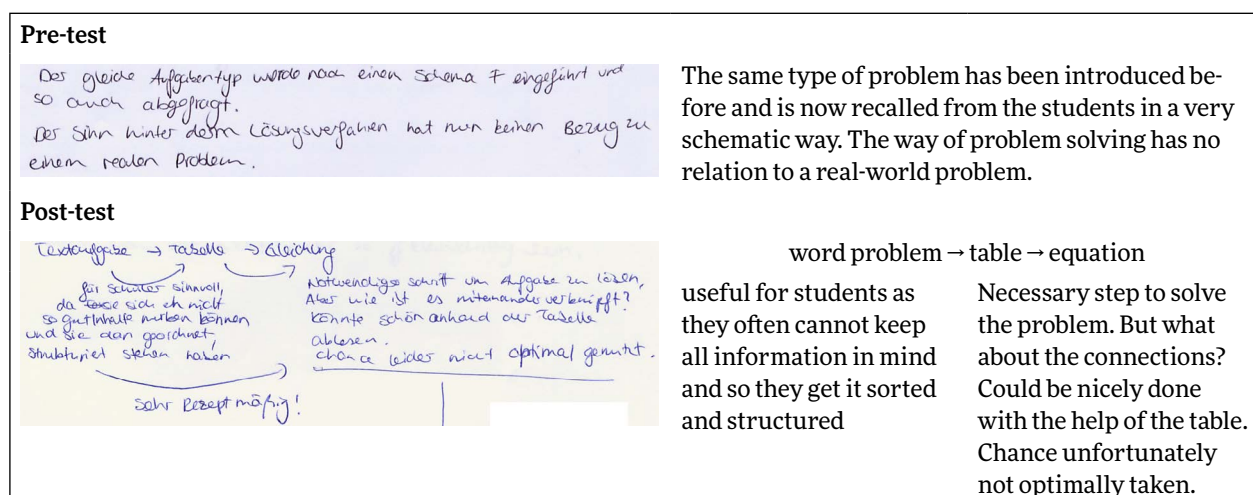 Pre-test
Der gleiche Aufgabentyp wurde nach einem Schema F eingeführt und
so auch abgefragt.
Der Sinn hinter dem Lösungsverfahren hat nun keinen Bezug zu
einem realen Problem.
The same type of problem has been introduced be-
fore and is now recalled from the students in a very
schematic way. The way of problem solving has no
relation to a real-world problem.
Post-test
Textaufgabe → Tabelle → Gleichung
für Schüler sinnvoll,
da sich eh nicht
so gut Inhalte merken können
und sie dann geordnet,
strukturiert stehen haben
Notwendiger Schritt um Aufgabe zu lösen,
Aber wie ist es miteinander verknüpft?
Könnte schön anhand der Tabelle
ablesen.
Chance leider nicht optimal genutzt.
Sehr Rezeptmäßig!
word problem → table → equation
useful for students as
they often cannot keep
all information in mind
and so they get it sorted
and structured
Necessary step to solve
the problem. But what
about the connections?
Could be nicely done
with the help of the table.
Chance unfortunately
not optimally taken.